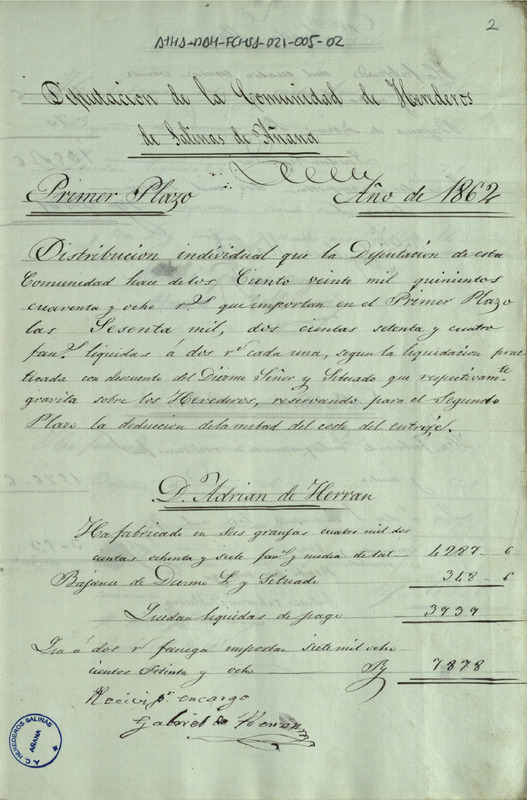 2
ATHA-DAH-FCHSA-021-005-02
Diputacion de la Comunidad de Herederos
de Salinas de Añana
Primer Plazo Año de 1862
Distribucion individual que la Diputacion de esta
Comunidad hace de los Ciento veinte mil quinientos
cuarenta y ocho r.s que importan en el Primer Plazo
las Sesenta mil, dos cientas setenta y cuatro
fan.s liquidas á dos r.s cada una, segun la liquidacion prac-
ticada con descuento del Diezmo Señor y Situado que respectivam.te
gravita sobre los Herederos, reservando para el Segundo
Plazo la deduccion de la mitad del coste del entroje.
D. Adrian de Herran
Ha fabricado en sus granjas cuatro mil dos
cientas ochenta y siete fan.s y media de sal 4287 - 6
Bajanse de Diezmo S. y Situado 348 - 6
Quedan liquidas de pago 3939
Que á dos r.s fanega importan siete mil ocho
cientos setenta y ocho 7878
Recivi p.r encargo
Gabriel de Herran
A.C. HEREDEROS SALINAS
AÑANA